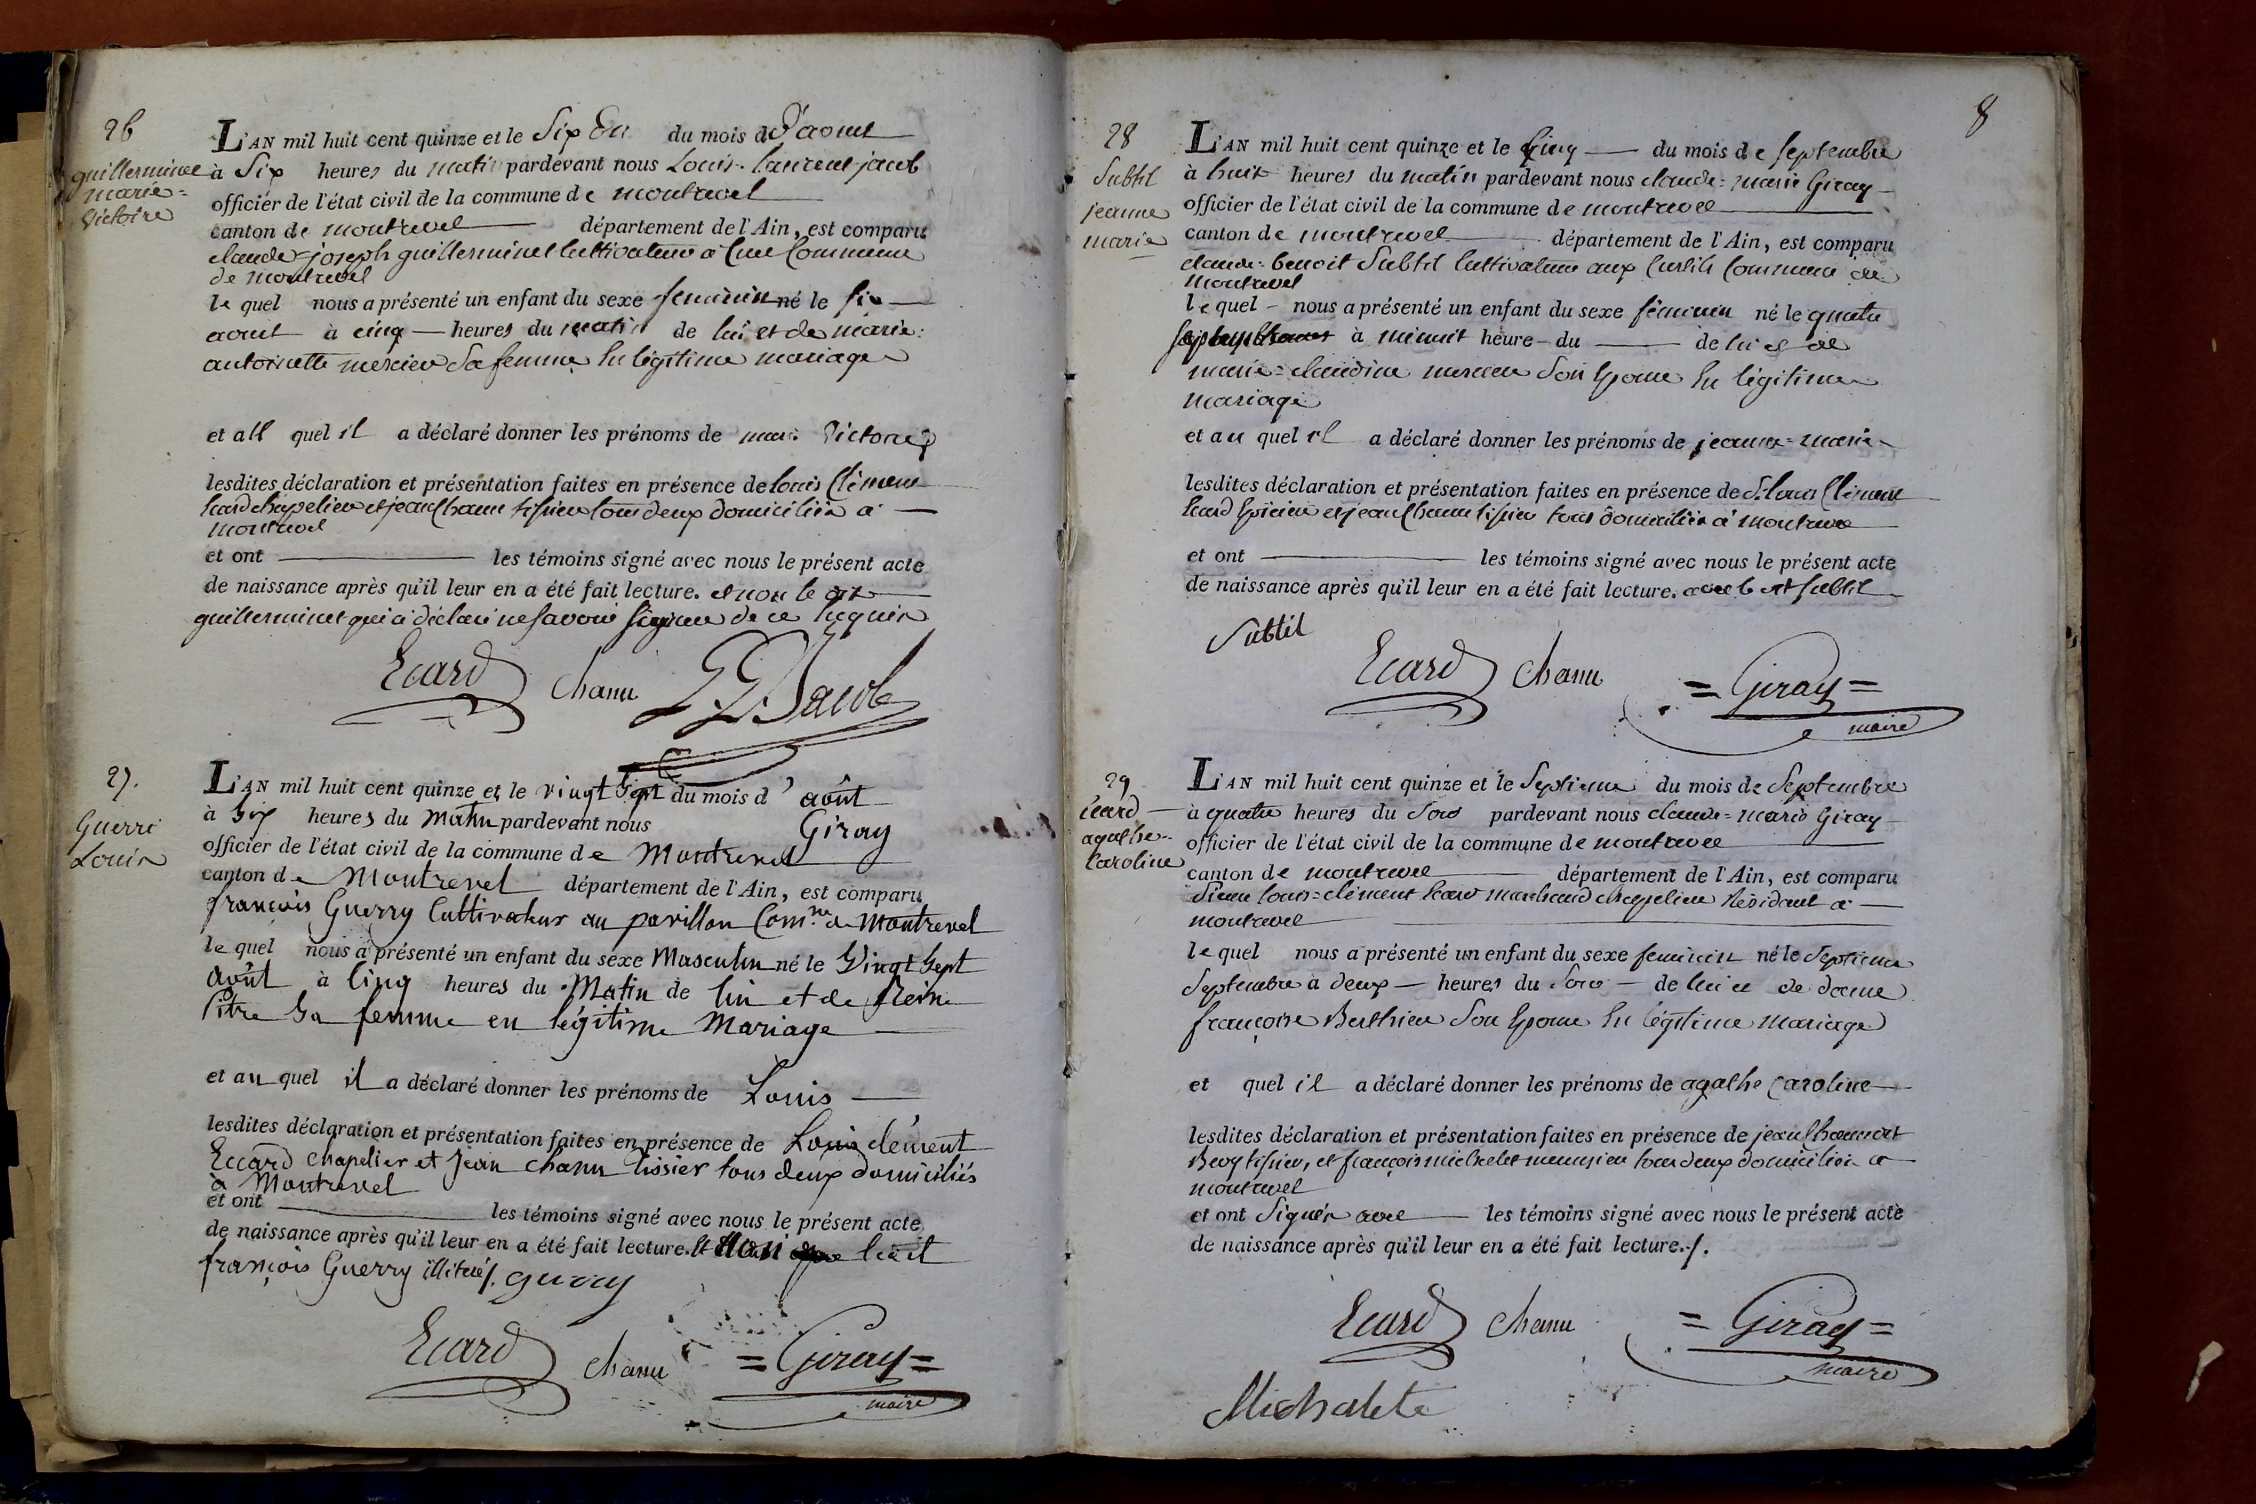 26
guillerminet
marie=
Victoire
L'AN mil huit cent quinze et le Six du mois d'aout
à Six heures du matin pardevant nous Louis-laurent jacob
officier de l'état civil de la commune de montrevel
canton de montrevel département de l'Ain, est comparu
claude=joseph guillerminet Cultivateur à Commune
de montrevel
le quel nous a présenté un enfant du sexe feminin né le six
aout à cinq heures du matin de lui et de marie:
antoinette mercier Sa femme En légitime mariage
et all quel il a déclaré donner les prénoms de marie Victoire
lesdites déclaration et présentation faites en présence de louis Clément
Ecard chapelier et jean Chanu tissier tous deux domiciliés à
montrevel
et ont les témoins signé avec nous le présent acte
de naissance après qu'il leur en a été fait lecture. et non le dit
guillerminet qui a déclaré ne savoir signer de ce requis
Ecard Chanu L. L. Jacob
27.
Guerri
Louis
L'AN mil huit cent quinze et le vingt Sept du mois d'août
à Six heures du Matin pardevant nous Giray
officier de l'état civil de la commune de Montrevel
canton de Montrevel département de l'Ain, est comparu
françois Guerry Cultivateur au pavillon Com.ne de Montrevel
le quel nous a présenté un enfant du sexe Masculin né le Vingt Sept
Août à Cinq heures du Matin de lui et de Reine
Pitre Sa femme en légitime Mariage
et au quel il a déclaré donner les prénoms de Louis
lesdites déclaration et présentation faites en présence de Louis clément
Eccard chapelier et Jean chanu tissier tous deux domiciliés
à Montrevel
et ont les témoins signé avec nous le présent acte
de naissance après qu'il leur en a été fait lecture. et non ledit
françois Guerry illitré/. guerry
Ecard Chanu =Giray=
maire
8
28
Subtil
jeanne
marie
L'AN mil huit cent quinze et le Cinq du mois de septembre
à huit heures du matin pardevant nous claude=marie Giray
officier de l'état civil de la commune de montrevel
canton de montrevel département de l'Ain, est comparu
claude=benoit Subtil Cultivateur aux Commune de
montrevel
le quel nous a présenté un enfant du sexe féminin né le quatre
septembre à minuit heure du de lui et de
marie=claudine mercier Son Epouse En légitime
mariage
et au quel il a déclaré donner les prénoms de jeanne=marie
lesdites déclaration et présentation faites en présence de S. Louis Clément
Ecard Epicier et jean Chanu tissier tous domiciliés à montrevel
et ont les témoins signé avec nous le présent acte
de naissance après qu'il leur en a été fait lecture. avec le dit subtil
Subtil
Ecard Chanu =Giray=
maire
29
Ecard
agathe=
Caroline
L'AN mil huit cent quinze et le Septieme du mois de Septembre
à quatre heures du Soir pardevant nous claude=marie Giray
officier de l'état civil de la commune de montrevel
canton de montrevel département de l'Ain, est comparu
Sieur louis=clément Ecard marchand chapelier Résidant à
montrevel
le quel nous a présenté un enfant du sexe feminin né le Septieme
Septembre à deux heures du Soir de lui et de dame
françoise Berthier Son Epouse En légitime mariage
et quel il a déclaré donner les prénoms de agathe Caroline
lesdites déclaration et présentation faites en présence de jean Chanu dit
Bevy tissier, et françois michelet menuisier tous deux domiciliés à
montrevel
et ont Signés avec les témoins signé avec nous le présent acte
de naissance après qu'il leur en a été fait lecture./.
Ecard Chanu =Giray=
maire
Michalete